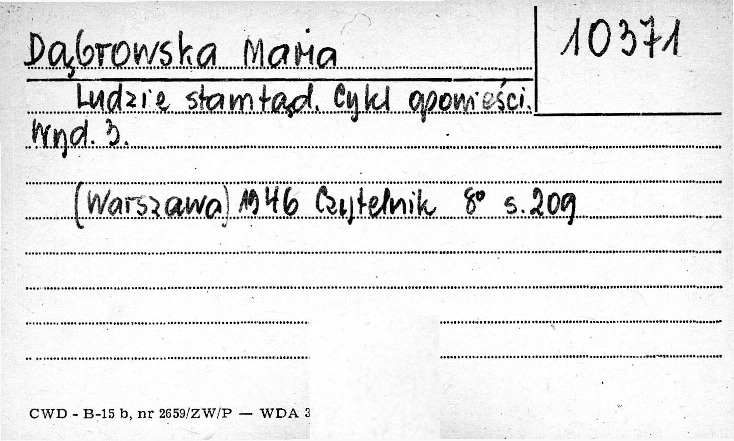 Dąbrowska Maria
10371
Ludzie stamtąd. Cykl opowieści.
Wyd. 3.
(Warszawa) 1946 Czytelnik 8° s. 209
CWD - B-15 b, nr 2659/ZW/P — WDA 3